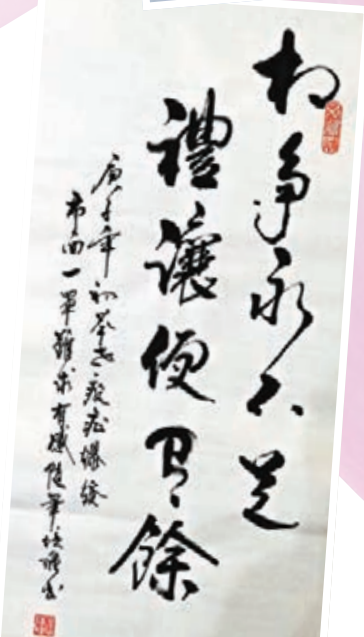 相爭永不足
禮讓便有餘
庚子年初疫症爆發
市面一罩難求有感隨筆培書